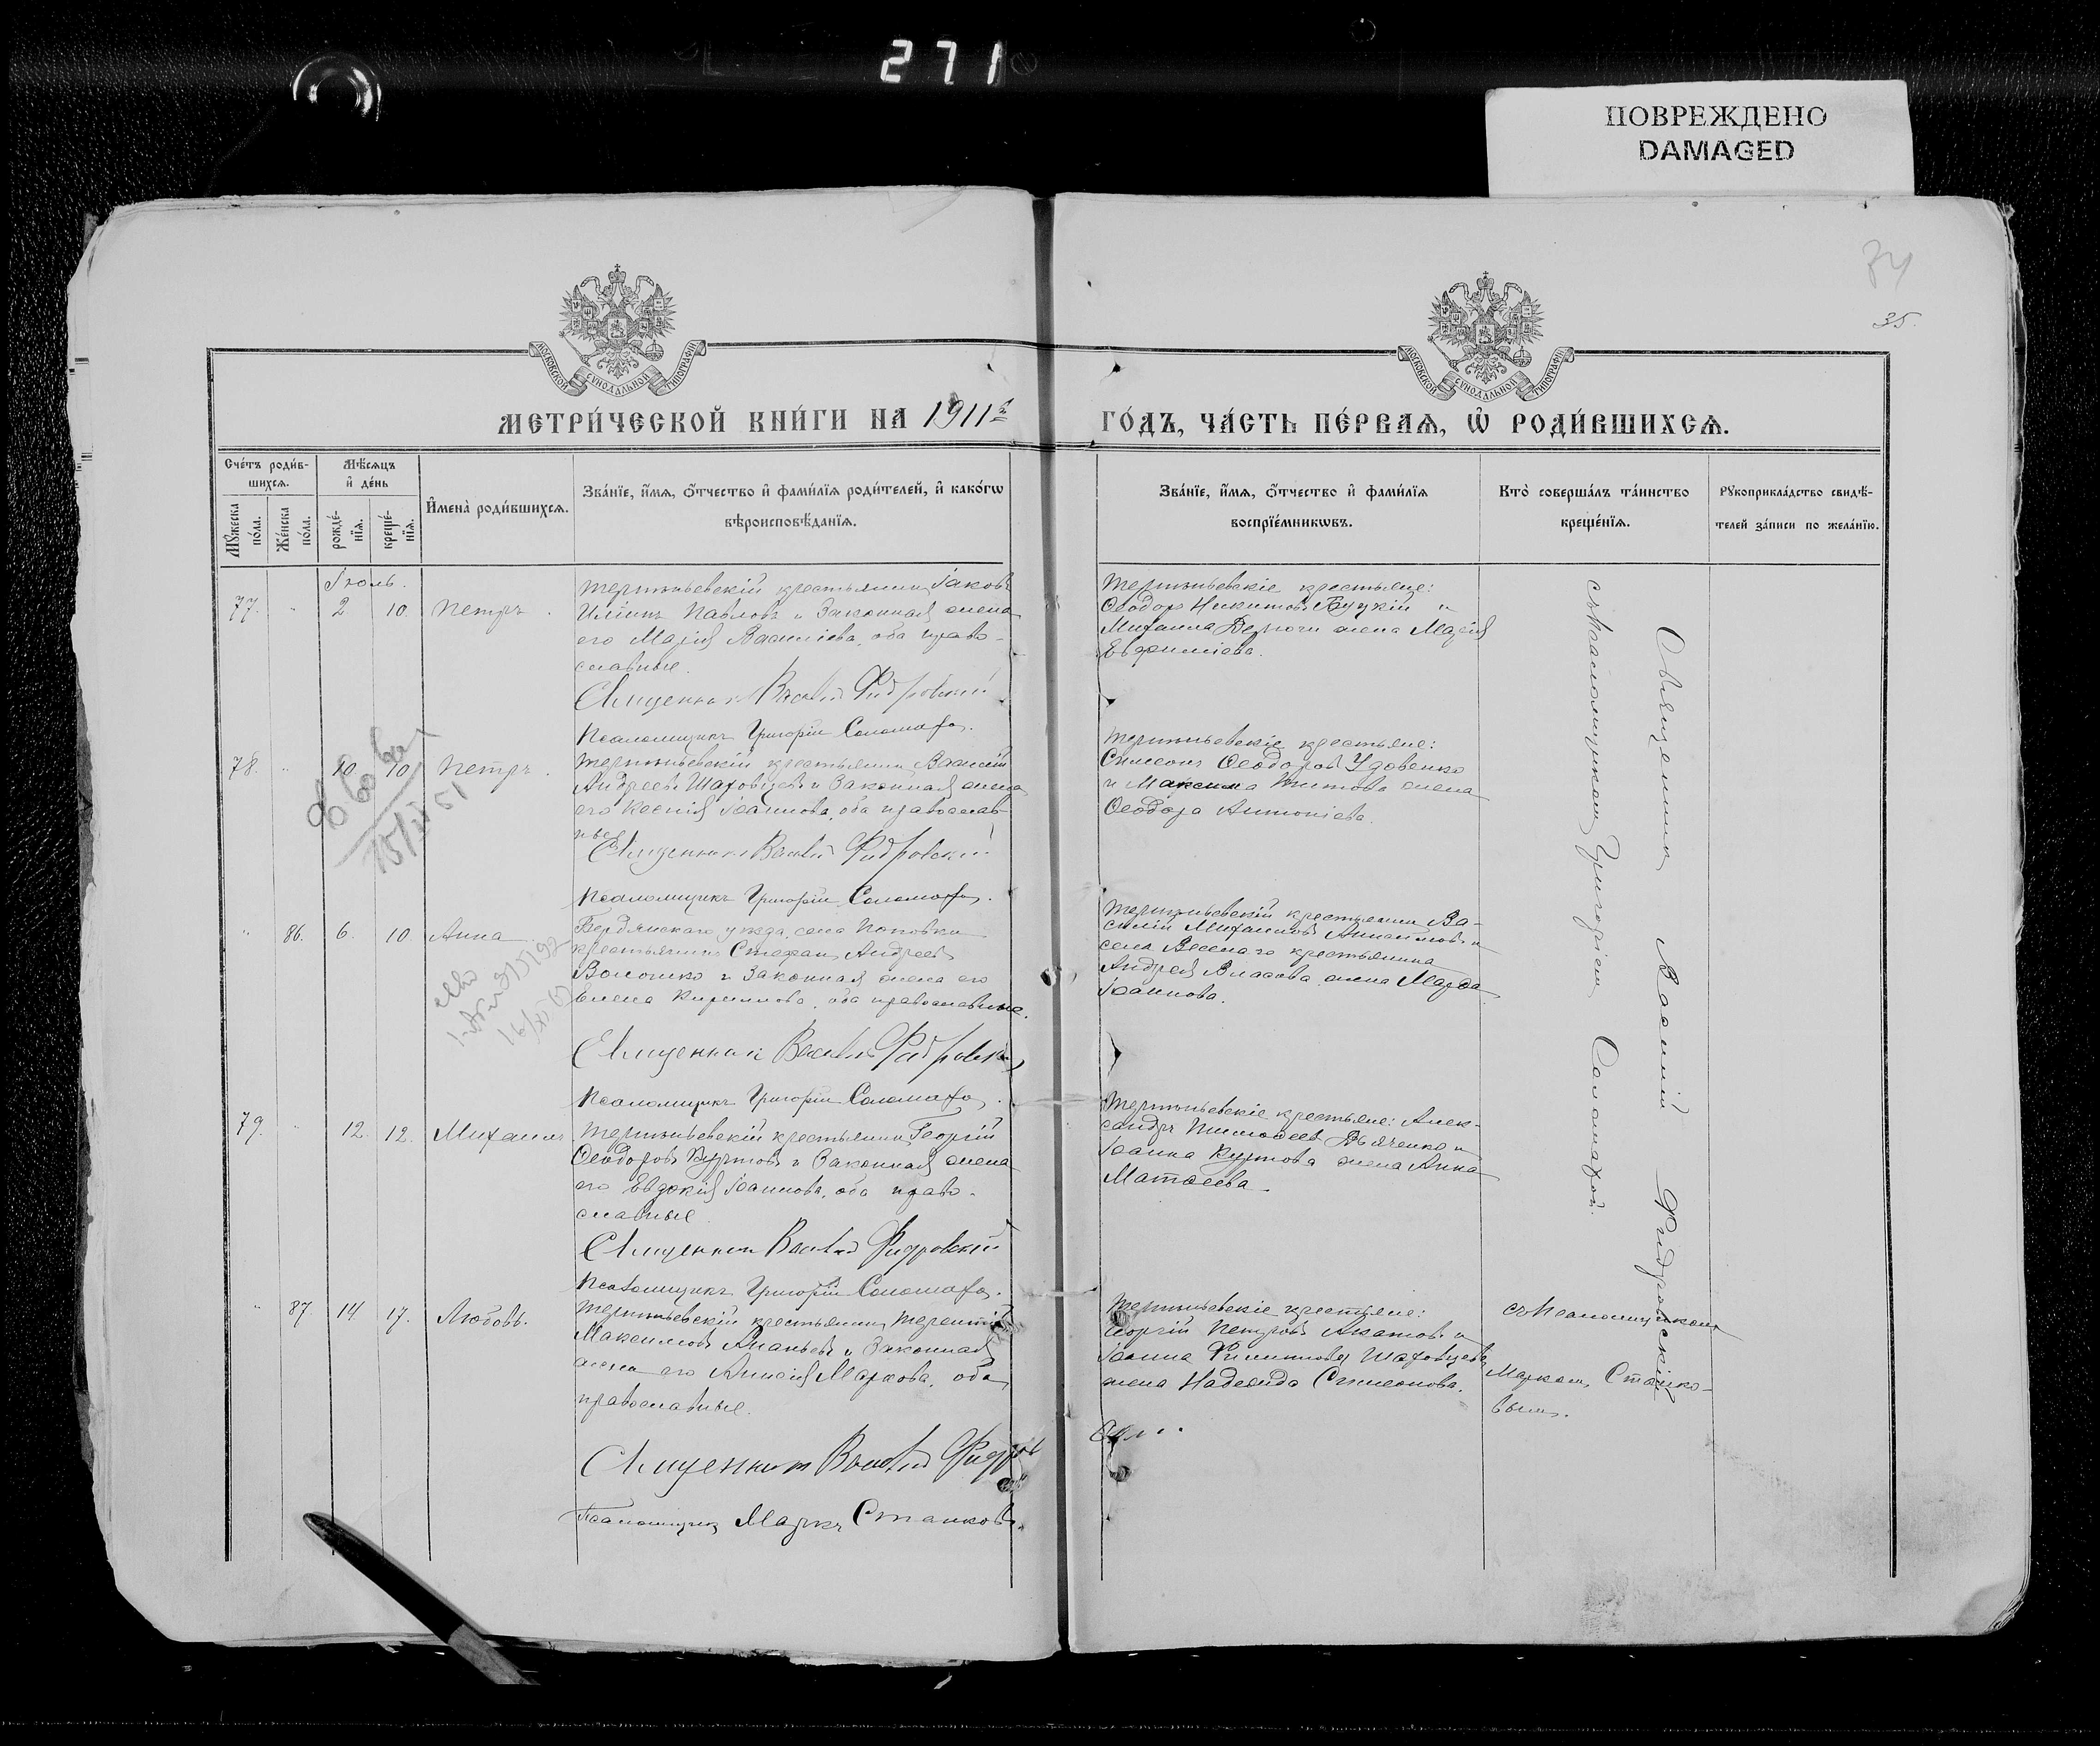 271
ПОВРЕЖДЕНО
DAMAGED
35.
МОСКОВСКОЙ СѴНОДАЛЬНОЙ ТИПОГРАФІИ
МОСКОВСКОЙ СѴНОДАЛЬНОЙ ТИПОГРАФІИ
МЕТРИ́ЧЕСКОЙ КНИ́ГИ НА 1911й
ГО́ДЪ, ЧА́СТЬ ПЕ́РВАѦ, Ѡ҆ РОДИ́ВШИХСѦ.
Сче́тъ роди́в-
шихсѧ.
Мѣ́сѧцъ
и҆ де́нь
Мꙋ́жеска
по́ла.
Же́нска
по́ла.
рожде́-
нїѧ.
креще́-
нїѧ.
И҆мена̀ роди́вшихсѧ.
Зва́нїе, и҆́мѧ, ѻ҆́тчество и҆ фами́лїѧ роди́телей, и҆ како́гѡ
вѣроисповѣ́данїѧ.
Зва́нїе, и҆́мѧ, ѻ҆́тчество и҆ фами́лїѧ
воспрїе́мникѡвъ.
Кто̀ соверша́лъ та́инство
креще́нїѧ.
Рꙋкоприкла́дство свидѣ́-
телей за́писи по жела́нїю.
Іюль.
77. " 2 10. Петръ.
Терпѣньевскій крестьянинъ Іаковъ
Ильинъ Павловъ и законная жена
его Марія Василіева, оба право-
славные.
Священникъ Василій Фидровскій
Псаломщикъ Григорій Соломаха.
Терпѣньевскіе крестьяне:
Ѳеодоръ Никитовъ Буцкій и
Михаила Дерюги жена Марія
Евфиміева.
78. " 10 10 Петръ.
Терпѣньевскій крестьянинъ Василій
Андреевъ Шаховцевъ и законная жена
его Ксенія Іоаннова, оба православ-
ные
Священникъ Василій Фидровскій
Псаломщикъ Григорій Соломаха.
Терпѣньевскіе крестьяне:
Симеонъ Ѳеодоровъ Удовенко
и Максима Титова жена
Ѳеодора Антоніева.
" 86. 6. 10 Анна
Бердянскаго уѣзда, села Поповки
крестьянинъ Стефанъ Андреевъ
Волошко и законная жена его
Елена Кириллова, оба православные.
Священникъ Василій Фидровскій
Псаломщикъ Григорій Соломаха.
Терпѣньевскій крестьянинъ Ва-
силій Михаиловъ и
села Веселаго крестьянина
Андрея Власова жена Марѳа
Іоаннова.
79. " 12. 12. Михаилъ
Терпѣньевскій крестьянинъ Георгій
Ѳеодоровъ Куртовъ и законная жена
его Евдокія Іоаннова, оба право-
славные
Священникъ Василій Фидровскій
Псаломщикъ Григорій Соломаха.
Терпѣньевскіе крестьяне: Алек-
сандръ Тимоѳеевъ Дьяченко и
Іоанна Куртова жена Анна
Матѳеева
" 87. 14 17. Любовь.
Терпѣньевскій крестьянинъ Терентій
Максимовъ Ананьевъ и законная
жена его Анисія Маркова, оба
православные.
Священникъ Василій Фидров
Псаломщикъ Маркъ Станковъ.
Терпѣньевскіе крестьяне:
Георгій Петровъ Акатовъ и
Іоанна Филиппова Шаховцева
жена Надежда Симеонова.
Священникъ Василій Фидровскій
съ псаломщикомъ Григоріемъ Соломахой.
съ псаломщикомъ
Маркомъ Станко-
вымъ.